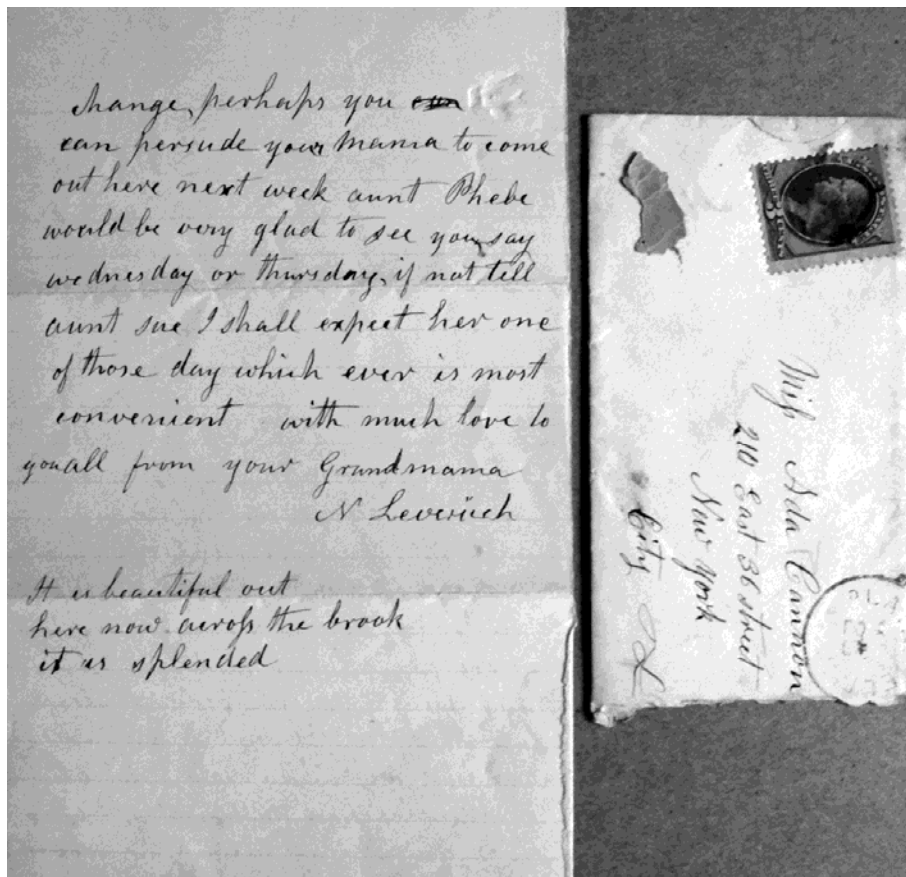 change, perhaps you can
can persude your mama to come
out here next week aunt Phebe
would be very glad to see you, say
wednesday or thursday, if not tell
aunt sue I shall expect her one
of those day which ever is most
convenient with much love to
you all from your Grandmama
N Leverich
It is beautiful out
here now across the brook
it is splended
Miss Ada Cannon
210 East 36 street
New York
City